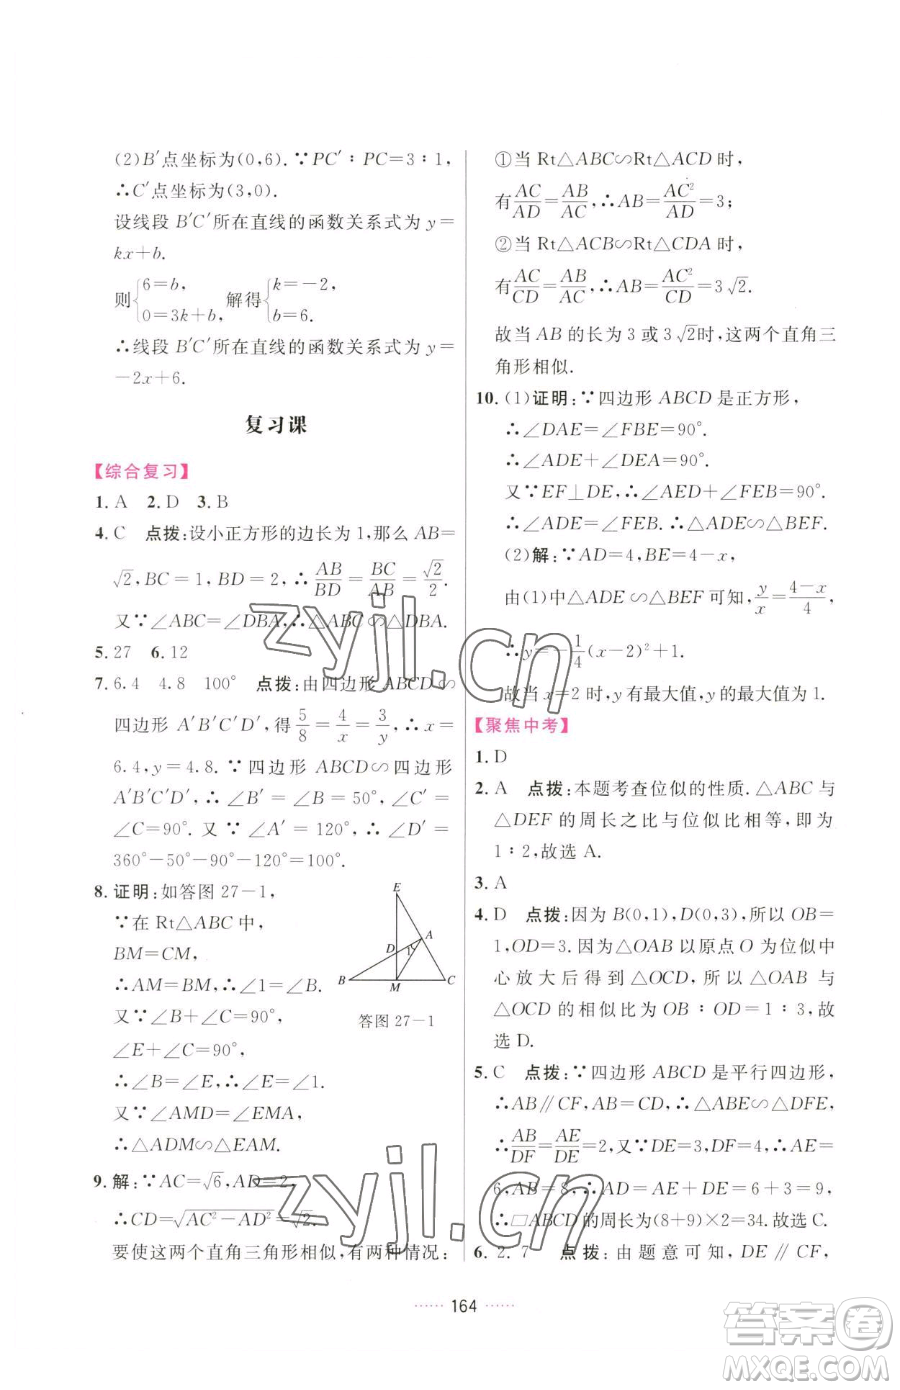 (2)B′点坐标为(0,6).∵PC′∶PC=3∶1,
∴C′点坐标为(3,0).
设线段 B′C′所在直线的函数关系式为 y=
kx+b.
则{6=b, 0=3k+b, 解得{k=-2, b=6.
∴线段 B′C′所在直线的函数关系式为 y=
-2x+6.
复习课
【综合复习】
1. A 2. D 3. B
4. C 点拨:设小正方形的边长为 1,那么 AB=
√2,BC=1,BD=2,∴AB/BD=BC/AB=√2/2.
又∵∠ABC=∠DBA,∴△ABC∽△DBA.
5. 27 6. 12
7. 6.4 4.8 100° 点拨:由四边形 ABCD∽
四边形 A′B′C′D′,得5/8=4/x=3/y,∴x=
6.4,y=4.8.∵四边形 ABCD∽四边形
A′B′C′D′,∴∠B′=∠B=50°,∠C′=
∠C=90°.又∵∠A′=120°,∴∠D′=
360°-50°-90°-120°=100°.
8. 证明:如答图 27-1,
∵在 Rt△ABC 中,
BM=CM,
∴AM=BM,∴∠1=∠B.
又∵∠B+∠C=90°,
∠E+∠C=90°,
∴∠B=∠E,∴∠E=∠1.
又∵∠AMD=∠EMA,
∴△ADM∽△EAM.
E
A
D
1
B M C
答图 27-1
9. 解:∵AC=√6,AD=2,
∴CD=√(AC²-AD²)=√2.
要使这两个直角三角形相似,有两种情况:
①当 Rt△ABC∽Rt△ACD 时,
有AC/AD=AB/AC,∴AB=AC²/AD=3;
②当 Rt△ACB∽Rt△CDA 时,
有AC/CD=AB/AC,∴AB=AC²/CD=3√2.
故当 AB 的长为 3 或 3√2时,这两个直角三
角形相似.
10. (1)证明:∵四边形 ABCD 是正方形,
∴∠DAE=∠FBE=90°.
∴∠ADE+∠DEA=90°.
又∵EF⊥DE,∴∠AED+∠FEB=90°.
∴∠ADE=∠FEB,∴△ADE∽△BEF.
(2)解:∵AD=4,BE=4-x,
由(1)中△ADE∽△BEF 可知,y/x=(4-x)/4,
∴y=-1/4(x-2)²+1.
故当 x=2 时,y 有最大值,y 的最大值为 1.
【聚焦中考】
1. D
2. A 点拨:本题考查位似的性质.△ABC 与
△DEF 的周长之比与位似比相等,即为
1∶2,故选 A.
3. A
4. D 点拨:因为 B(0,1),D(0,3),所以 OB=
1,OD=3.因为△OAB 以原点 O 为位似中
心放大后得到△OCD,所以△OAB 与
△OCD 的相似比为 OB∶OD=1∶3,故
选 D.
5. C 点拨:∵四边形 ABCD 是平行四边形,
∴AB∥CF,AB=CD,∴△ABE∽△DFE,
∴AB/DF=AE/DE=2,又∵DE=3,DF=4,∴AE=
6,AB=8,∴AD=AE+DE=6+3=9,
∴□ABCD的周长为(8+9)×2=34.故选 C.
6. 2.7 点拨:由题意可知,DE∥CF,
164
zyjl.cn
zyjl.cn
答案圈
MXQE.COM